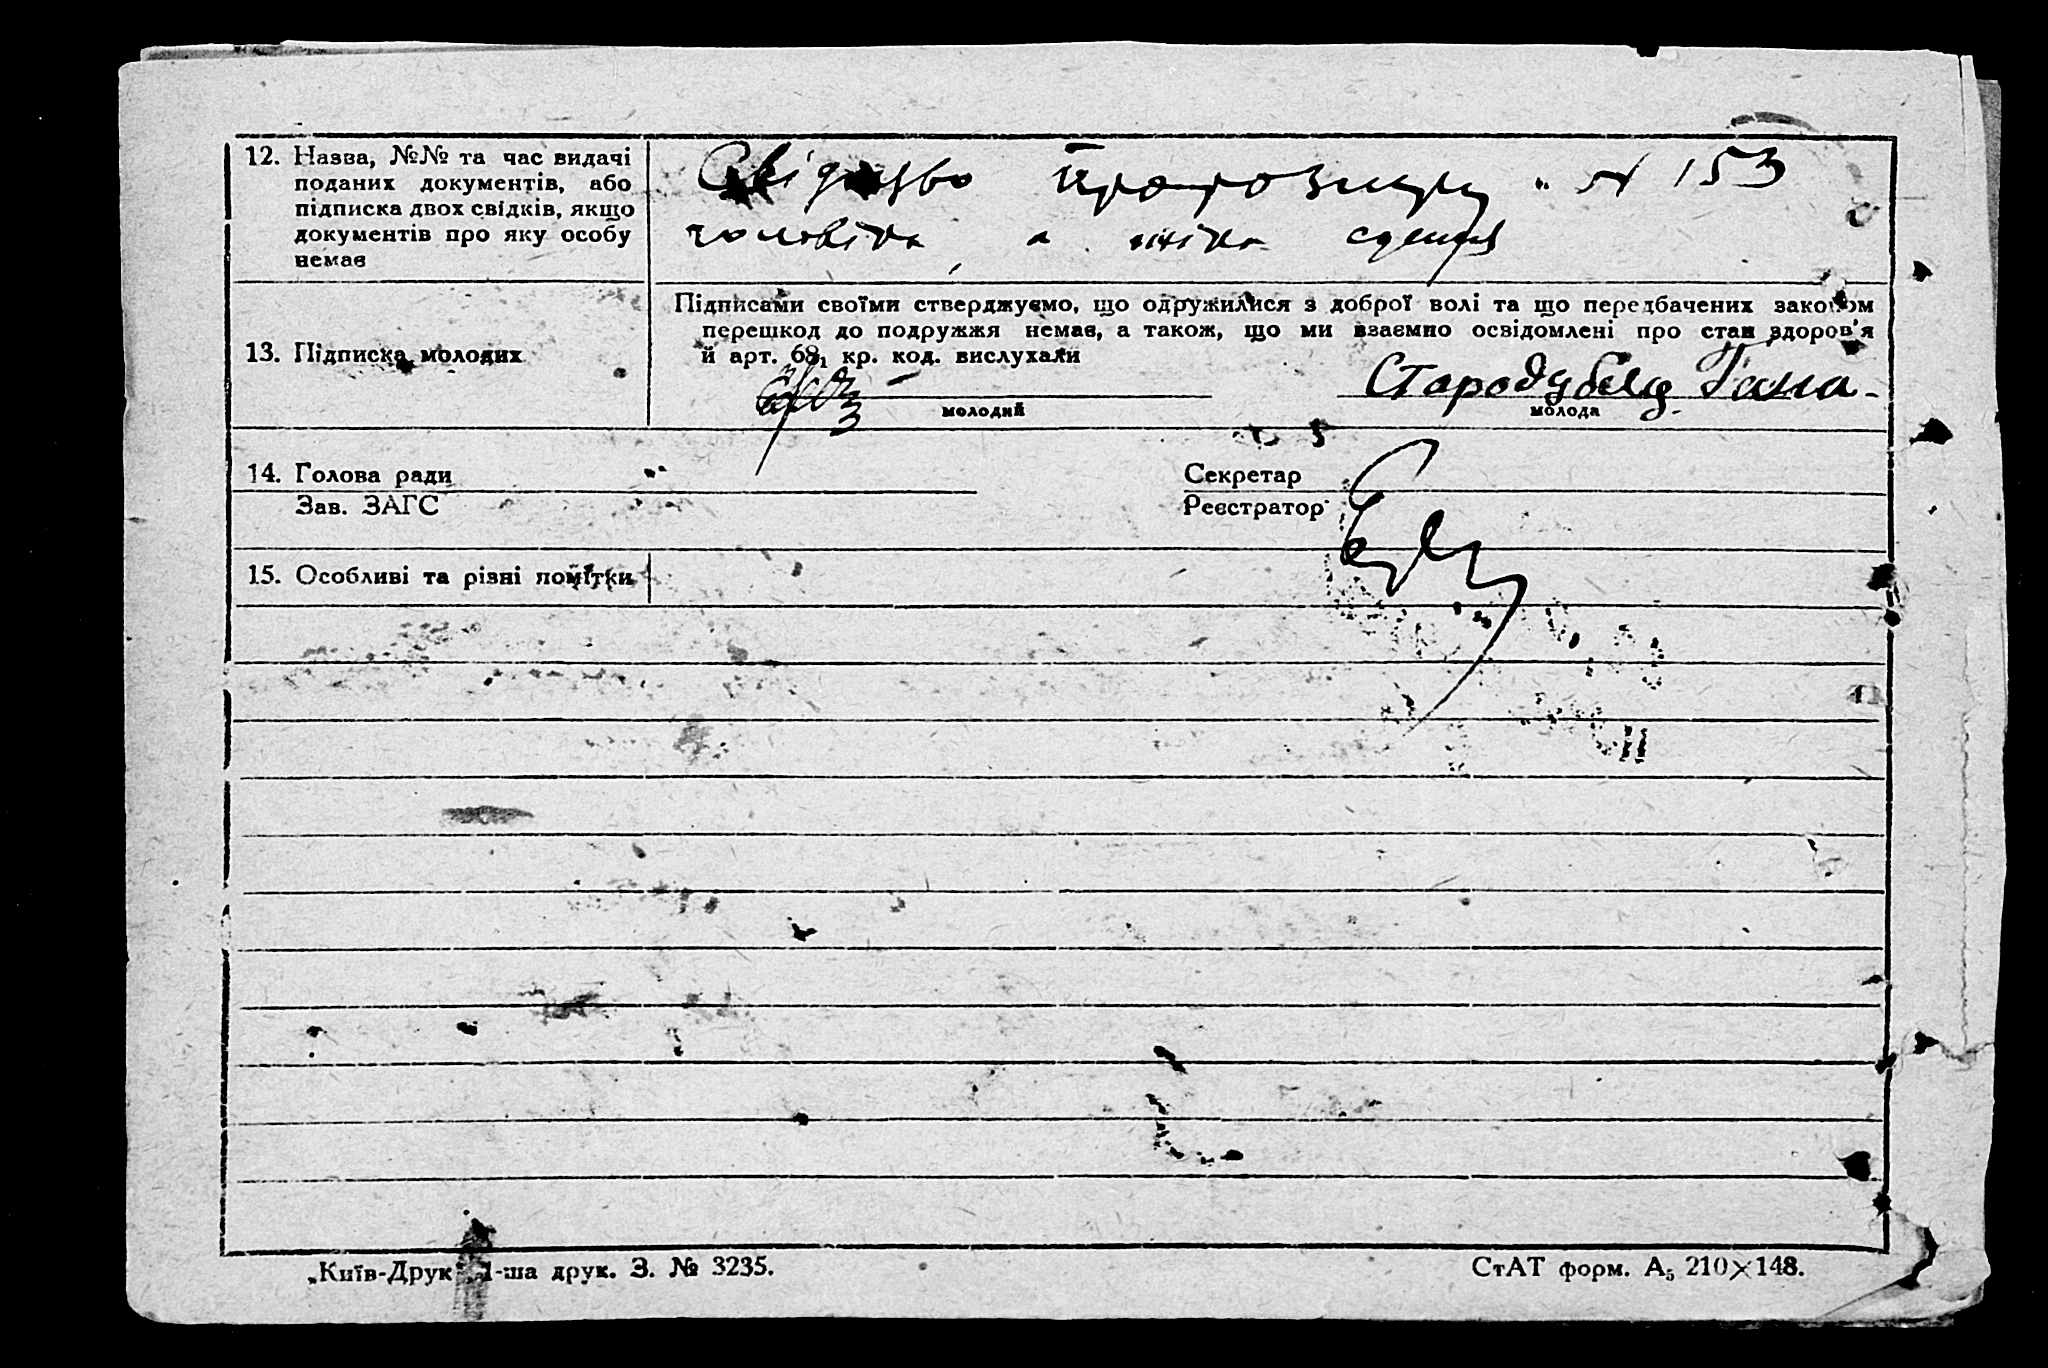 12. Назва, №№ та час видачі
поданих документів, або
підписка двох свідків, якщо
документів про яку особу
немає
№ 153
чоловіка, а жінка
13. Підписка молодих
Підписами своїми стверджуємо, що одружилися з доброї волі та що передбачених законом
перешкод до подружжя немає, а також, що ми взаємно освідомлені про стан здоров'я
й арт. 68₁ кр. код. вислухали
Стародубец Гана
молодий
молода
14. Голова ради
Секретар
Зав. ЗАГС
Реєстратор
15. Особливі та різні помітки
„Київ-Друк“, 1-ша друк. З. № 3235.
СтАТ форм. А₅ 210×148.